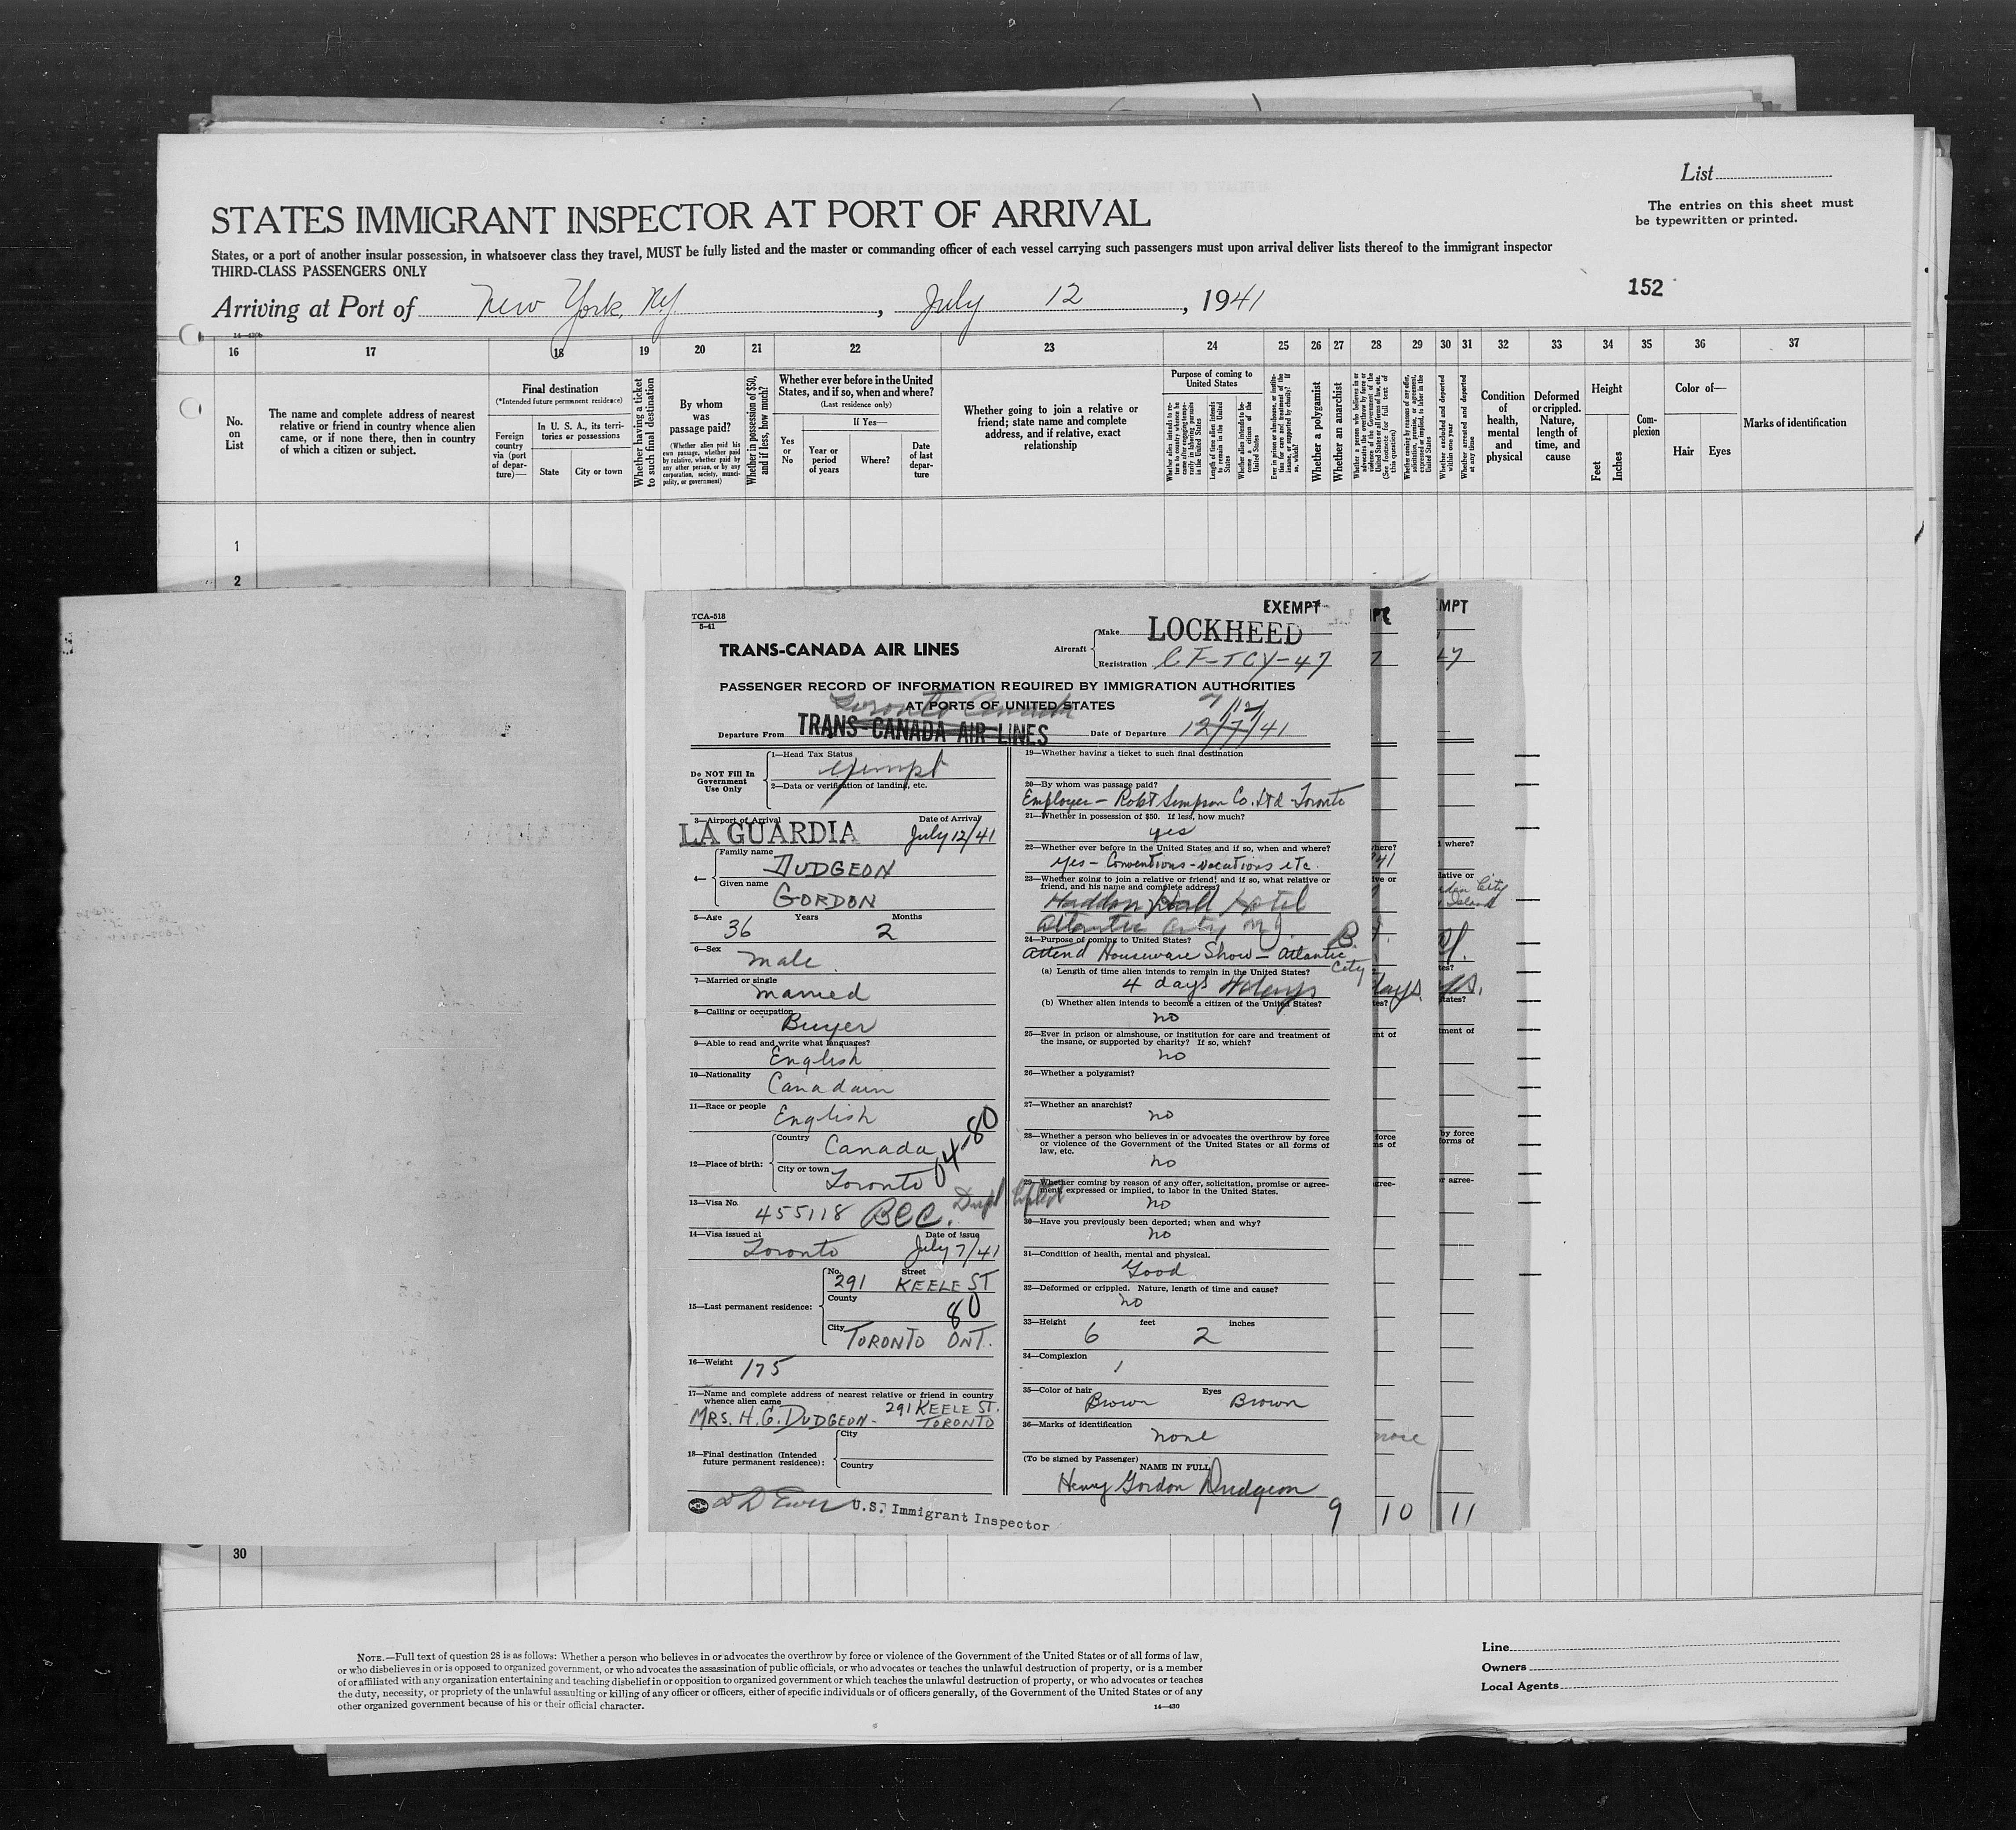 List
The entries on this sheet must
be typewritten or printed.
STATES IMMIGRANT INSPECTOR AT PORT OF ARRIVAL
States, or a port of another insular possession, in whatsoever class they travel, MUST be fully listed and the master or commanding officer of each vessel carrying such passengers must upon arrival deliver lists thereof to the immigrant inspector
THIRD-CLASS PASSENGERS ONLY
152
Arriving at Port of New York, N.Y. , July 12 , 1941
16 17 18 19 20 21 22 23 24 25 26 27 28 29 30 31 32 33 34 35 36 37
No.
on
List
The name and complete address of nearest
relative or friend in country whence alien
came, or if none there, then in country
of which a citizen or subject.
Final destination
(*Intended future permanent residence)
Foreign
country
via (port
of depar-
ture)—
In U. S. A., its terri-
tories or possessions
State
City or town
Whether having a ticket
to such final destination
By whom
was
passage paid?
(Whether alien paid his
own passage, whether paid
by relative, whether paid by
any other person, or by any
corporation, society, munici-
pality, or government)
Whether in possession of $50,
and if less, how much?
Whether ever before in the United
States, and if so, when and where?
(Last residence only)
If Yes—
Yes
or
No
Year or
period
of years
Where?
Date
of last
depar-
ture
Whether going to join a relative or
friend; state name and complete
address, and if relative, exact
relationship
Purpose of coming to
United States
Length of time alien intends
to remain in the United
States
Whether alien intends to be-
come a citizen of the
United States
Whether a polygamist
Whether an anarchist
Whether excluded and deported
within one year
Whether arrested and deported
at any time
Condition
of
health,
mental
and
physical
Deformed
or crippled.
Nature,
length of
time, and
cause
Height
Feet
Inches
Com-
plexion
Color of—
Hair
Eyes
Marks of identification
1
2
TCA-518
5-41
EXEMPT
TRANS-CANADA AIR LINES
Aircraft
Make LOCKHEED
Registration CF-TCY-47
PASSENGER RECORD OF INFORMATION REQUIRED BY IMMIGRATION AUTHORITIES
AT PORTS OF UNITED STATES
Toronto Canada
Departure From TRANS-CANADA AIR LINES
Date of Departure 12/7/41
Do NOT Fill In
Government
Use Only
1—Head Tax Status
Exempt
2—Data or verification of landing, etc.
3—Airport of Arrival Date of Arrival
LA GUARDIA July 12/41
4— Family name
DUDGEON
Given name
GORDON
5—Age Years Months
36 2
6—Sex
Male.
7—Married or single
Married
8—Calling or occupation
Buyer
9—Able to read and write what languages?
English
10—Nationality
Canadain
11—Race or people
English
12—Place of birth:
Country
Canada
City or town
Toronto
04-80
13—Visa No.
455118 BCC.
14—Visa issued at Date of issue
Toronto July 7/41
15—Last permanent residence:
No. Street
291 KEELE ST
County
80
City
TORONTO ONT.
16—Weight 175
17—Name and complete address of nearest relative or friend in country
whence alien came
MRS. H. G. DUDGEON - 291 KEELE ST.
TORONTO
18—Final destination (Intended
future permanent residence):
City
Country
U.S. Immigrant Inspector
19—Whether having a ticket to such final destination
20—By whom was passage paid?
Employer — Robt Simpson Co. Ltd Toronto
21—Whether in possession of $50. If less, how much?
yes
22—Whether ever before in the United States and if so, when and where?
Yes — Conventions - Vacations etc.
23—Whether going to join a relative or friend; and if so, what relative or
friend, and his name and complete address?
Haddon Hall Hotel
Atlantic City N.J.
24—Purpose of coming to United States?
Attend Houseware Show — Atlantic
City
B.
(a) Length of time alien intends to remain in the United States?
4 days
(b) Whether alien intends to become a citizen of the United States?
no
25—Ever in prison or almshouse, or institution for care and treatment of
the insane, or supported by charity? If so, which?
no
26—Whether a polygamist?
27—Whether an anarchist?
no
28—Whether a person who believes in or advocates the overthrow by force
or violence of the Government of the United States or all forms of
law, etc.
no
29—Whether coming by reason of any offer, solicitation, promise or agree-
ment, expressed or implied, to labor in the United States.
no
30—Have you previously been deported; when and why?
no
31—Condition of health, mental and physical.
Good
32—Deformed or crippled. Nature, length of time and cause?
no
33—Height feet inches
6 2
34—Complexion
35—Color of hair Eyes
Brown Brown
36—Marks of identification
none
(To be signed by Passenger)
NAME IN FULL
Henry Gordon Dudgeon
9 10 11
30
NOTE.—Full text of question 28 is as follows: Whether a person who believes in or advocates the overthrow by force or violence of the Government of the United States or of all forms of law,
or who disbelieves in or is opposed to organized government, or who advocates the assassination of public officials, or who advocates or teaches the unlawful destruction of property, or is a member
of or affiliated with any organization entertaining and teaching disbelief in or opposition to organized government or which teaches the unlawful destruction of property, or who advocates or teaches
the duty, necessity, or propriety of the unlawful assaulting or killing of any officer or officers, either of specific individuals or of officers generally, of the Government of the United States or of any
other organized government because of his or their official character.
14—430
Line
Owners
Local Agents